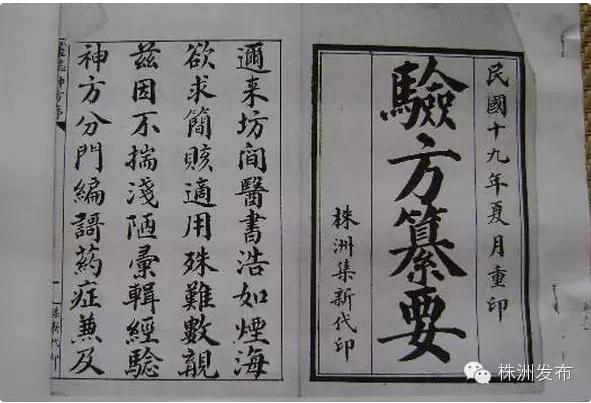 民國十九年夏月重印
驗方纂要
株洲集新代印
邇来坊間醫書浩如煙海
欲求簡賅適用殊難數覯
茲因不揣淺陋彙輯經驗
神方分門編謌药症兼及
株洲发布